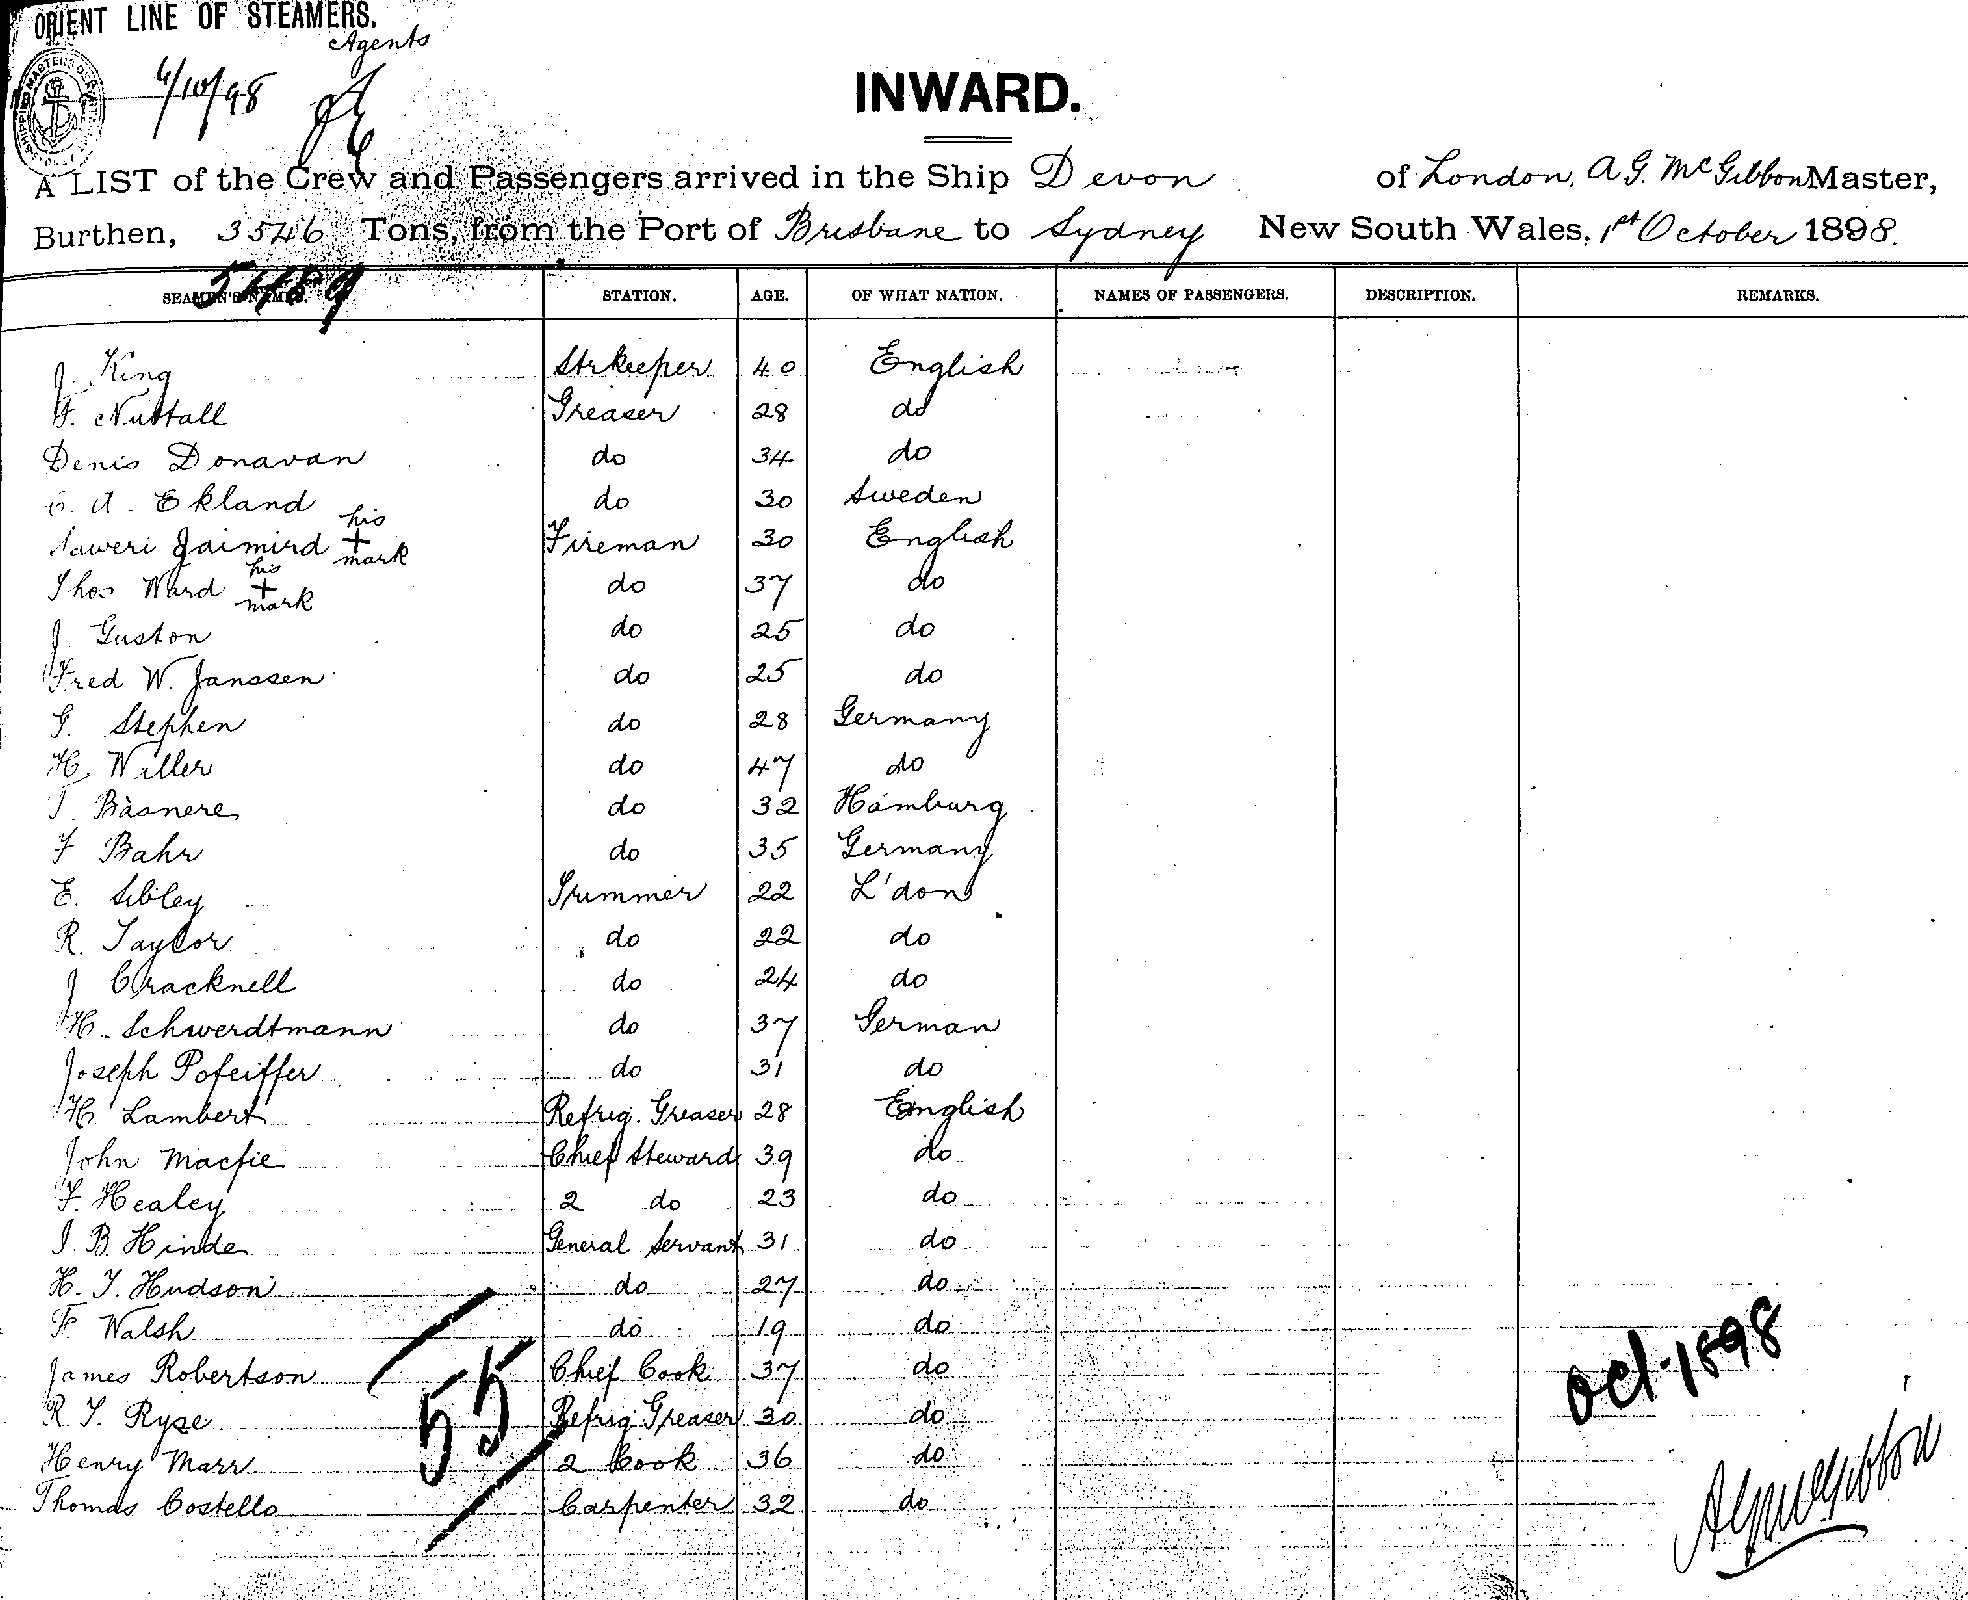 ORIENT LINE OF STEAMERS.
Agents
6/10/98
INWARD.
A LIST of the Crew and Passengers arrived in the Ship Devon of London, A. G. McGibbon Master,
Burthen, 3546 Tons, from the Port of Brisbane to Sydney New South Wales, 1st October 1898.
5489
SEAMEN'S NAMES. STATION. AGE. OF WHAT NATION. NAMES OF PASSENGERS. DESCRIPTION. REMARKS.
J. King Strkeeper 40 English
F. Nuttall Greaser 28 do
Denis Donavan do 34 do
A. Ekland do 30 Sweden
Jaimird his + mark Fireman 30 English
Thos Ward his + mark do 37 do
J. Guston do 25 do
Fred W. Janssen do 25 do
G. Stephen do 28 Germany
H. Willer do 47 do
Basnere do 32 Hamburg
F Bahr do 35 Germany
E. Sibley Trimmer 22 L'don
R. Taylor do 22 do
J Cracknell do 24 do
H. Schwerdtmann do 37 German
Joseph Pofeiffer do 31 do
H. Lambert Refrig. Greaser 28 English
John Macfie Chief Steward 39 do
F. Healey 2 do 23 do
J. B. Hinde General Servant 31 do
H. T. Hudson do 27 do
F. Walsh do 19 do
James Robertson Chief Cook 37 do
R. T. Ryse Refrig Greaser 30 do
Henry Marr 2 Cook 36 do
Thomas Costello Carpenter 32 do
55
Oct. 1898
A G McGibbon